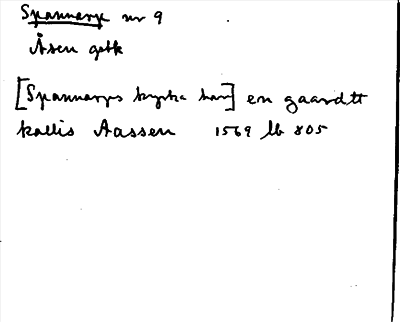 Spannarp nr 9
Åsen gebk
[Spannarps kyrka har] en gaardtt
kallis Aassen 1569 lb 805